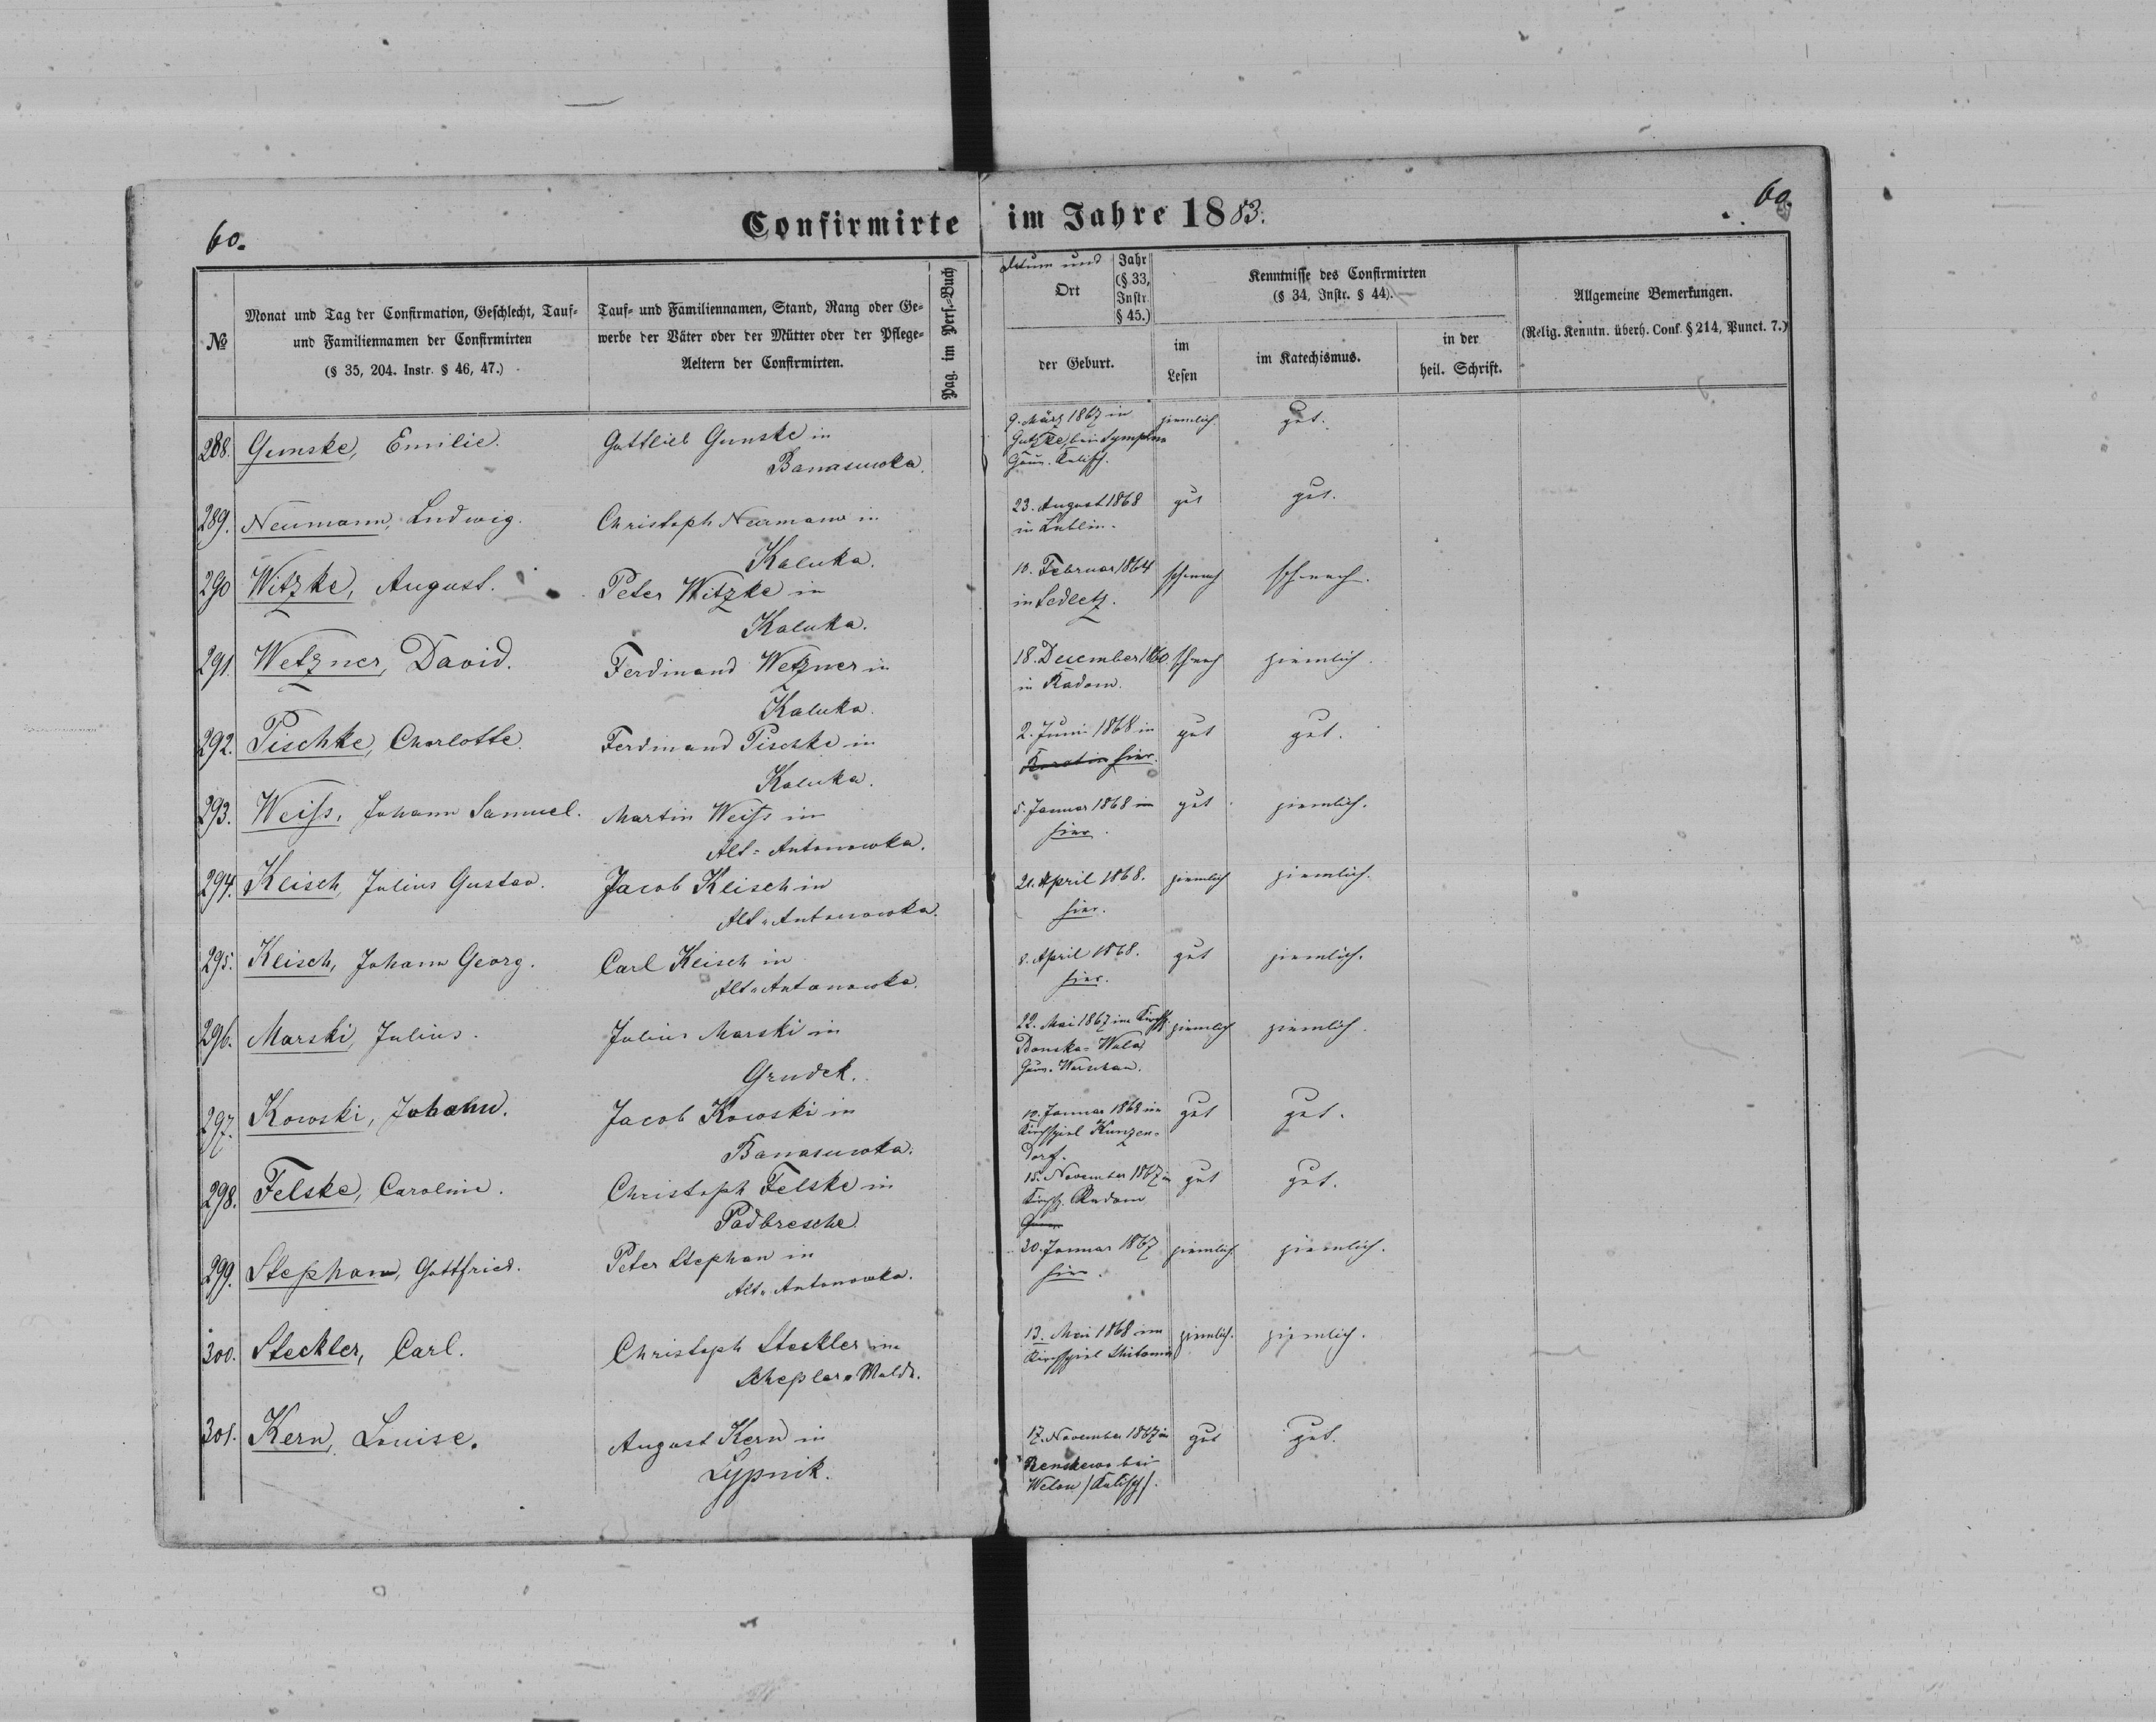 60.
60.
Confirmirte im Jahre 1883.
№
Monat und Tag der Confirmation, Geschlecht, Tauf-
und Familiennamen der Confirmirten
(§ 35, 204. Instr. § 46, 47.)
Tauf- und Familiennamen, Stand, Rang oder Ge-
werbe der Väter oder der Mütter oder der Pflege-
Aeltern der Confirmirten.
Pag. im Pers.-Buch
Datum und
Ort
Jahr
(§ 33,
Instr.
§ 45.)
der Geburt.
Kenntnisse des Confirmirten
(§ 34, Instr. § 44).
im
Lesen
im Katechismus.
in der
heil. Schrift.
Allgemeine Bemerkungen.
(Relig. Kenntn. überh. Conf. § 214, Punct. 7.)
288. Gunske, Emilie. Gottlieb Gunske in 9. März 1867 in ziemlich gut.
Banasuwka. bei
Gouv. Kalisch.
289. Neumann, Ludwig. Christoph Neumann in 23. August 1868 gut gut.
Kaluka. in Lublin.
290 Witzke, August. Peter Witzke in 10. Februar 1864 schwach schwach.
Kaluka. in Sedletz.
291. Wetzner, David. Ferdinand Wetzner in 18. December 1860 schwach ziemlich.
Kaluka. in Radom.
292. Pischke, Charlotte. Ferdinand Pischke in 2. Juni 1868 in gut gut.
Kaluka. hier.
293. Weiss, Johann Samuel. Martin Weiss in 5. Januar 1868 in gut ziemlich.
Alt-Antonowka. hier.
294. Kleisch, Julius Gustav. Jacob Kleisch in 21. April 1868. ziemlich ziemlich.
Alt-Antonowka. hier.
295. Kleisch, Johann Georg. Carl Kleisch in 8. April 1868. gut ziemlich.
Alt-Antonowka. hier.
296. Marski, Julius. Julius Marski in 22. Mai 1867 im Kirchsp. ziemlich ziemlich.
Grudek. Donska-Wola
Gouv. Warschau.
297. Kowski, Johann. Jacob Kowski in 10. Januar 1868 im gut gut.
Banasuwka. Kirchspiel Kunzen-
dorf.
298. Felske, Caroline. Christoph Felske in 15. November 1867 in gut gut.
Padbresche Kirchsp. Radom
299. Stephan, Gottfried. Peter Stephan in 20. Januar 1867 ziemlich ziemlich.
Alt-Antonowka. hier.
300. Steckler, Carl. Christoph Steckler im 13. Mai 1868 im ziemlich. ziemlich.
Schepler-Walde. Kirchspiel Shitomir
301. Kern, Louise. August Kern in 17. November 1867 in gut gut.
Lypnik. Renskewo bei
Welun /Kalisch/.